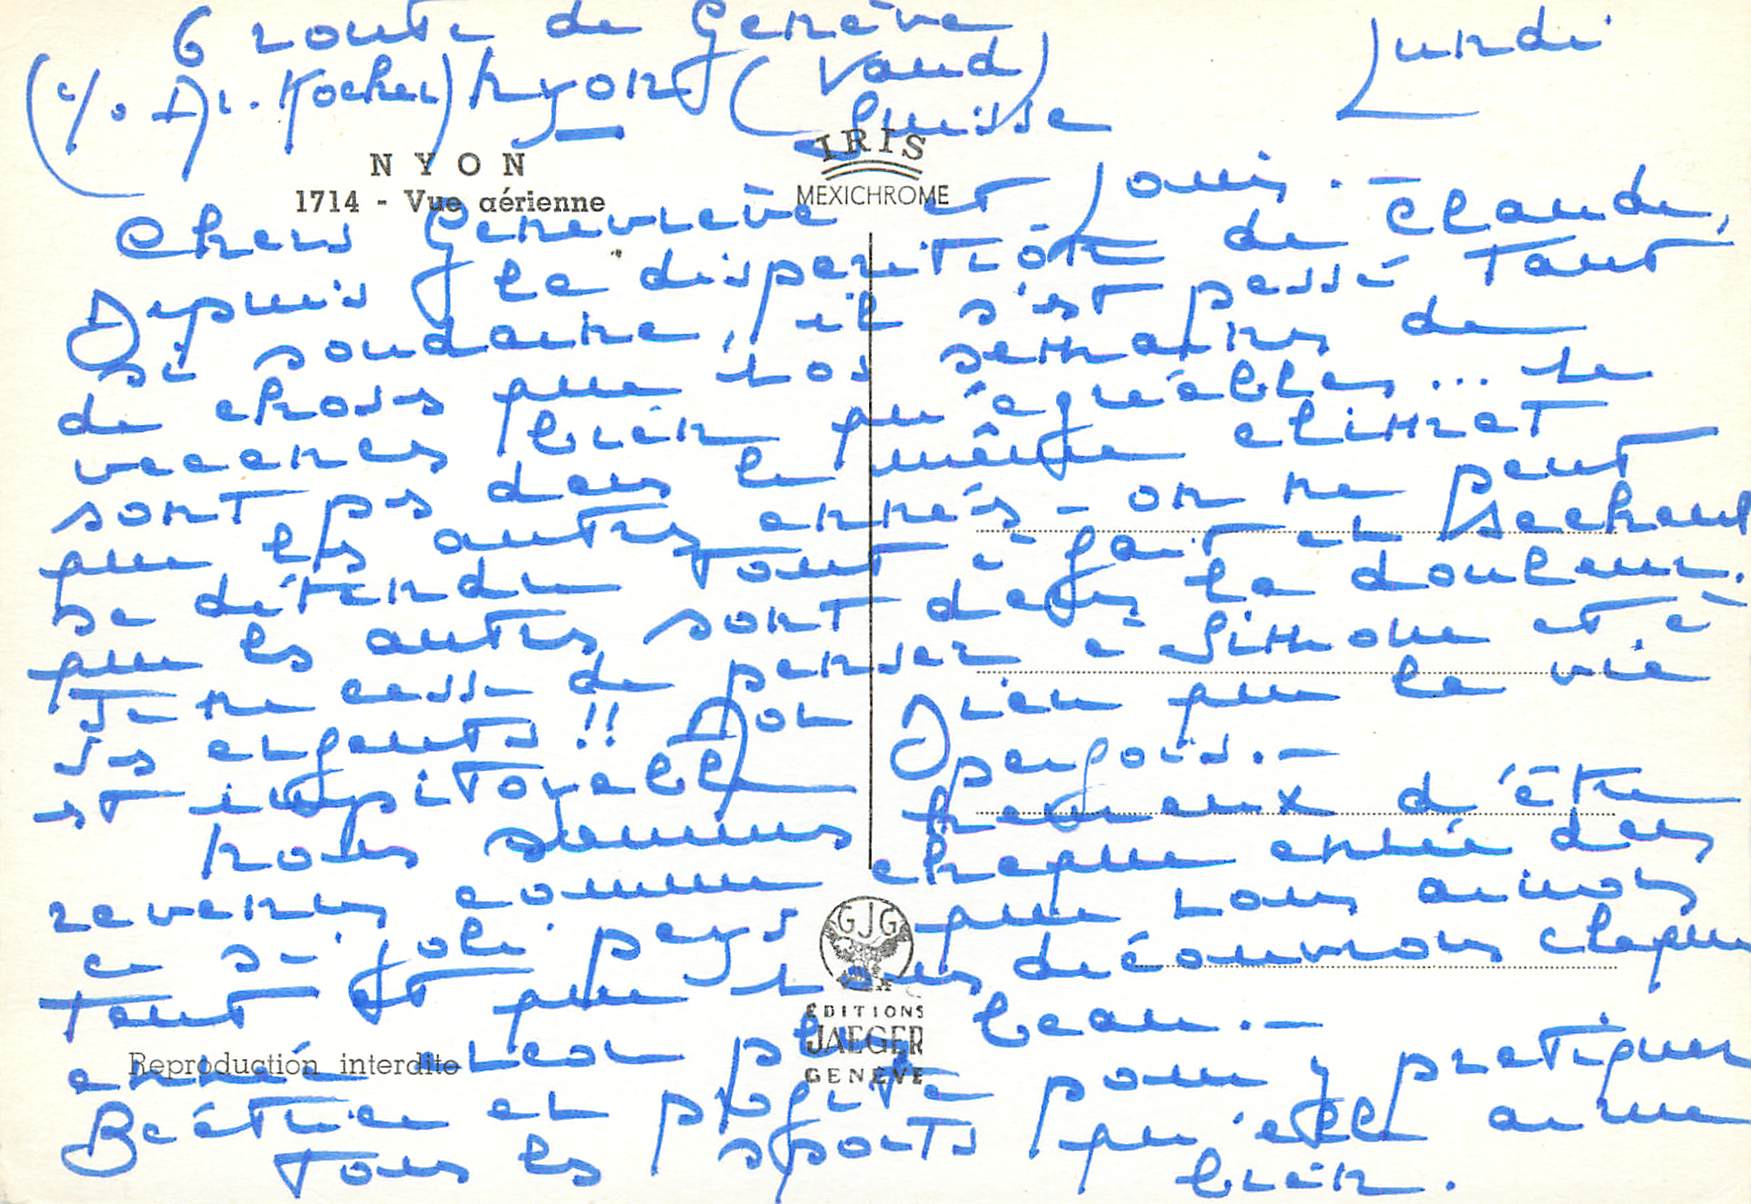 6 route de Genève
(c/o Dr. Kocher) Nyon (Vaud)
Suisse
Lundi
NYON
1714 - Vue aérienne
IRIS
MEXICHROME
Chers Geneviève et Louis. -
Depuis la disparition de Claude,
si soudaine, il s'est passé tant
de choses que nos semaines de
vacances bien qu'agréables... ne
sont pas dans le même climat
que les autres années - on ne peut
se détendre tout à fait en sachant
que les autres sont dans la douleur.
Je ne cesse de penser à Simone et à
ses enfants !! Mon Dieu que la vie
est impitoyable parfois. -
Nous sommes heureux d'être
revenus comme chaque année dans
ce si joli pays que nous aimons
tant et que nous découvrons chaque
année encor plus beau. -
Béatrice en profite pour y pratiquer
tous les sports qu'elle aime
bien.
GJG
EDITIONS
JAEGER
GENÈVE
Reproduction interdite